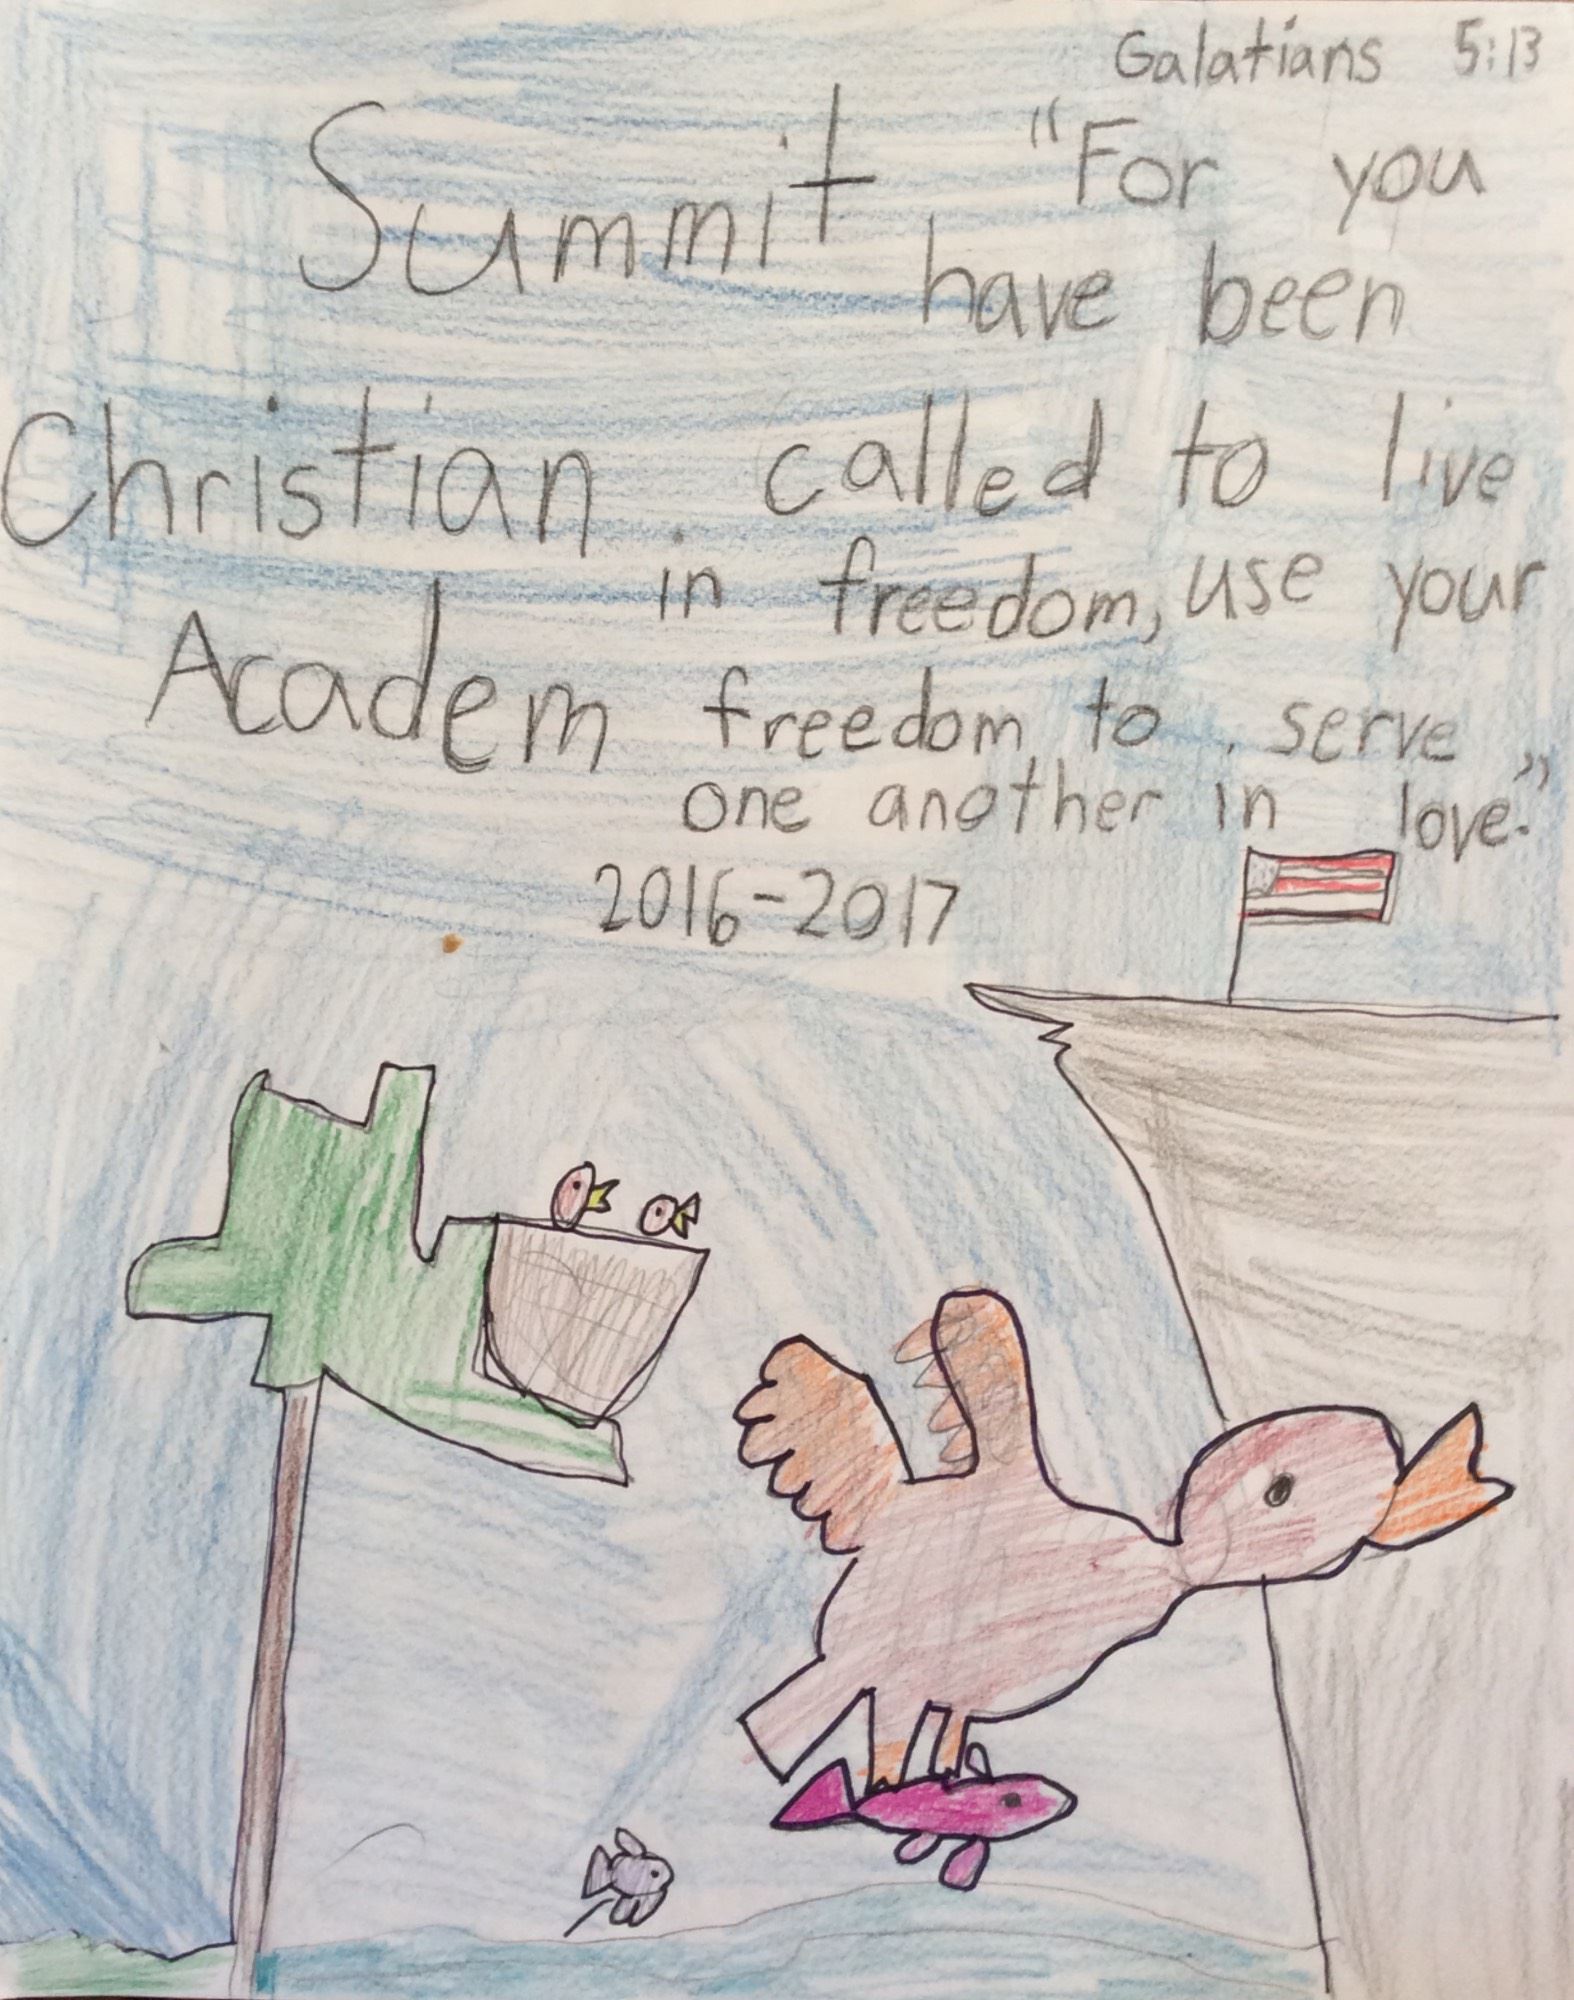 Summit
Christian
Academ
Galatians 5:13
"For you
have been
called to live
in freedom, use your
freedom to serve
one another in love."
2016-2017